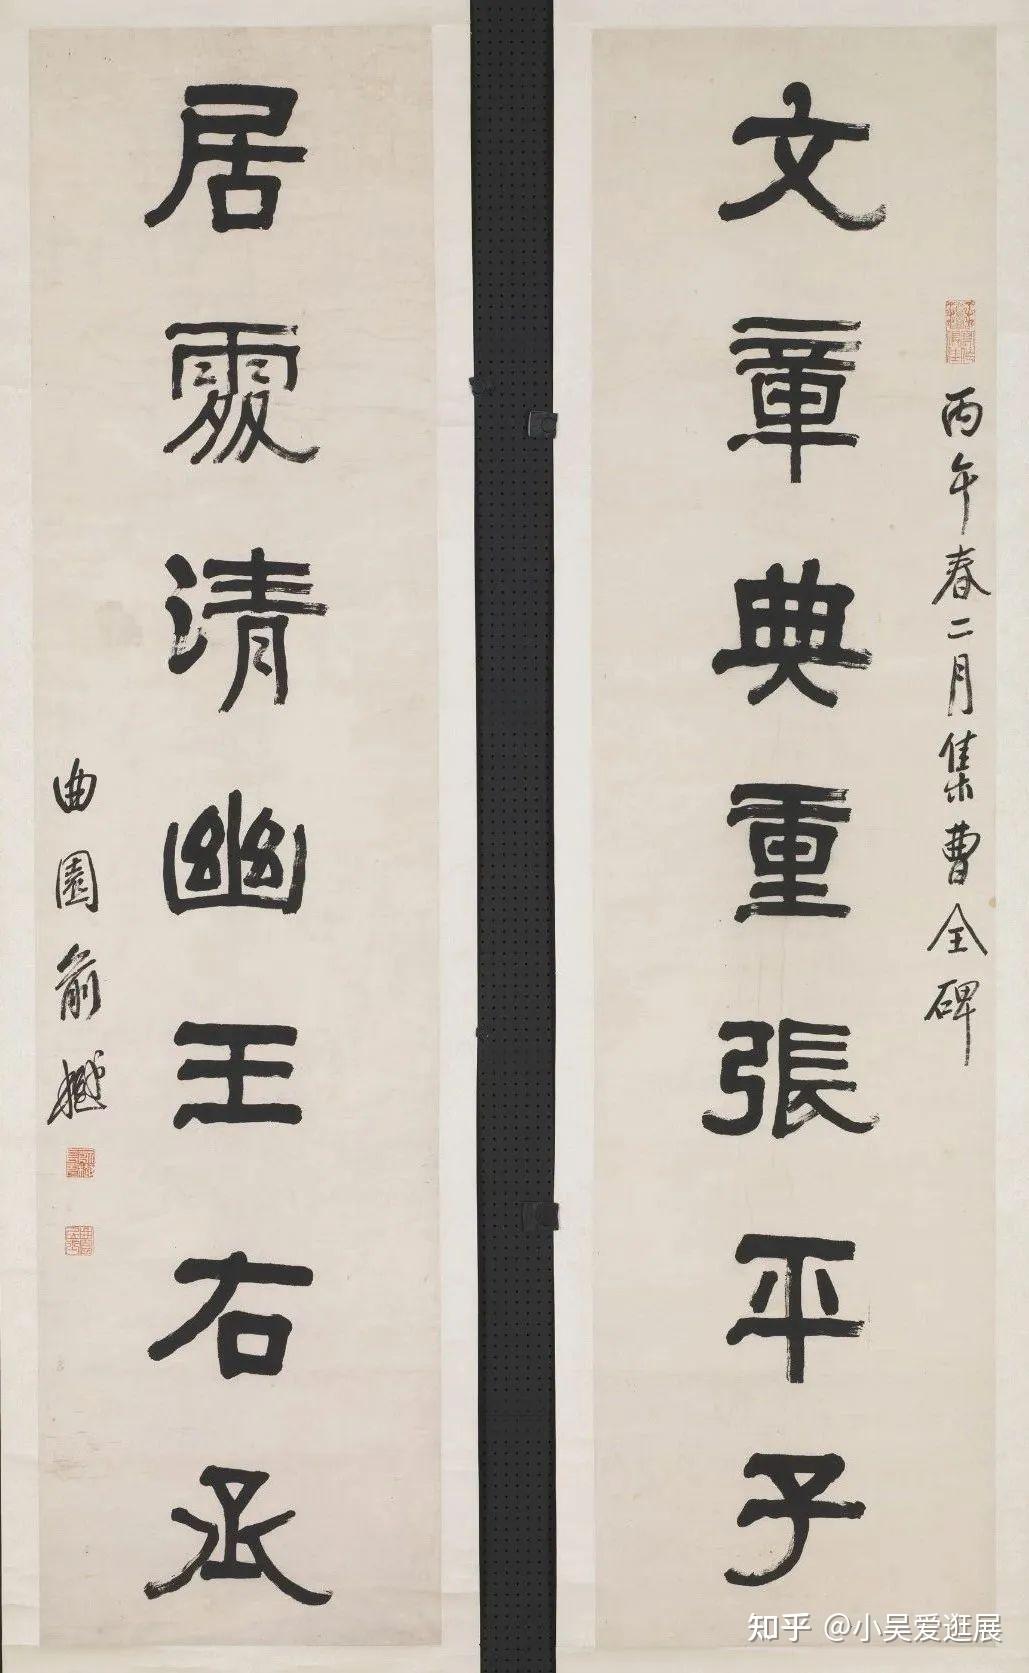 文章典重張平子
丙午春二月集曹全碑
居處清幽王右丞
曲園俞樾
知乎 @小吴爱逛展